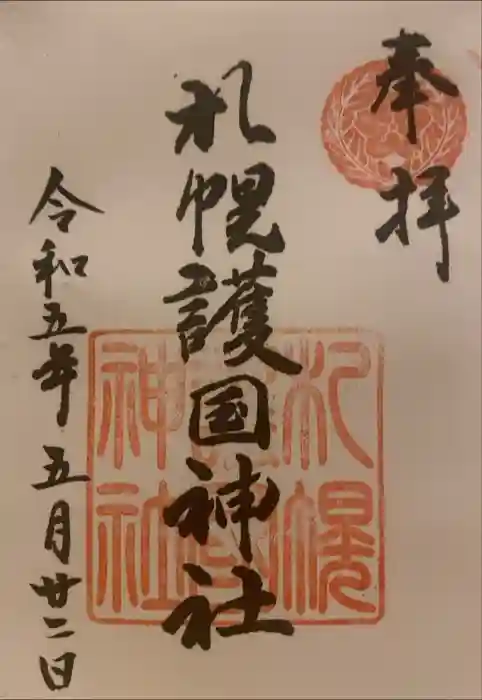 奉拝
札幌護国神社
札幌
護國
神社
令和五年 五月廿二日